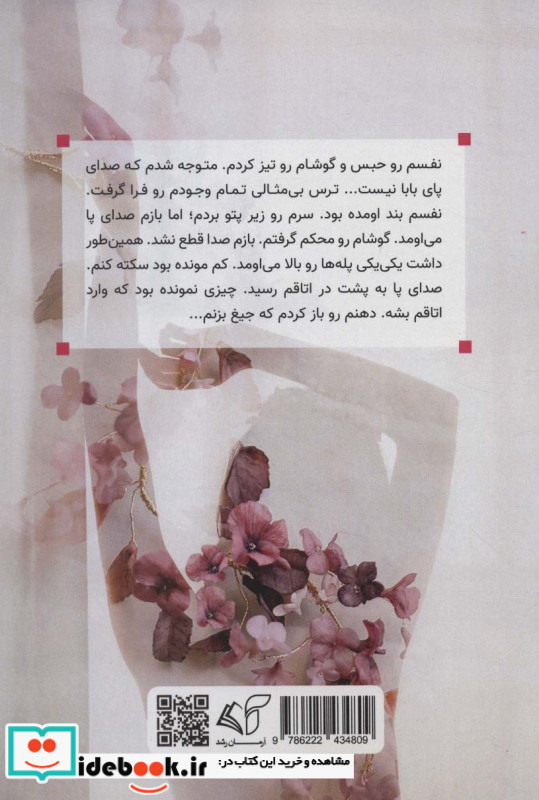 نفسم رو حبس و گوشام رو تیز کردم. متوجه شدم که صدای
پای بابا نیست... ترس بی‌مثالی تمام وجودم رو فرا گرفت.
نفسم بند اومده بود. سرم رو زیر پتو بردم؛ اما بازم صدای پا
می‌اومد. گوشام رو محکم گرفتم. بازم صدا قطع نشد. همین‌طور
داشت یکی‌یکی پله‌ها رو بالا می‌اومد. کم مونده بود سکته کنم.
صدای پا به پشت در اتاقم رسید. چیزی نمونده بود که وارد
اتاقم بشه. دهنم رو باز کردم که جیغ بزنم...
آرمان رشد
9 786222 434809
مشاهده و خرید این کتاب در:
idebook.ir